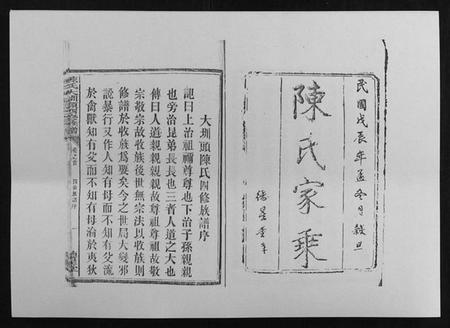 民國戊辰年孟冬月穀旦
陳氏家乘
大圳頭陳氏四修族譜序
記曰上治祖禰尊尊也下治子孫親親
也旁治昆弟長長也三者人道之大也
傳曰人道親親親親故尊祖尊祖故敬
宗敬宗故收族後世無宗法以收族則
修譜於收族為要矣今之世局大變邪
說暴行又作人知有母而不知有父流
於禽獸知有父而不知有母治於夷狄